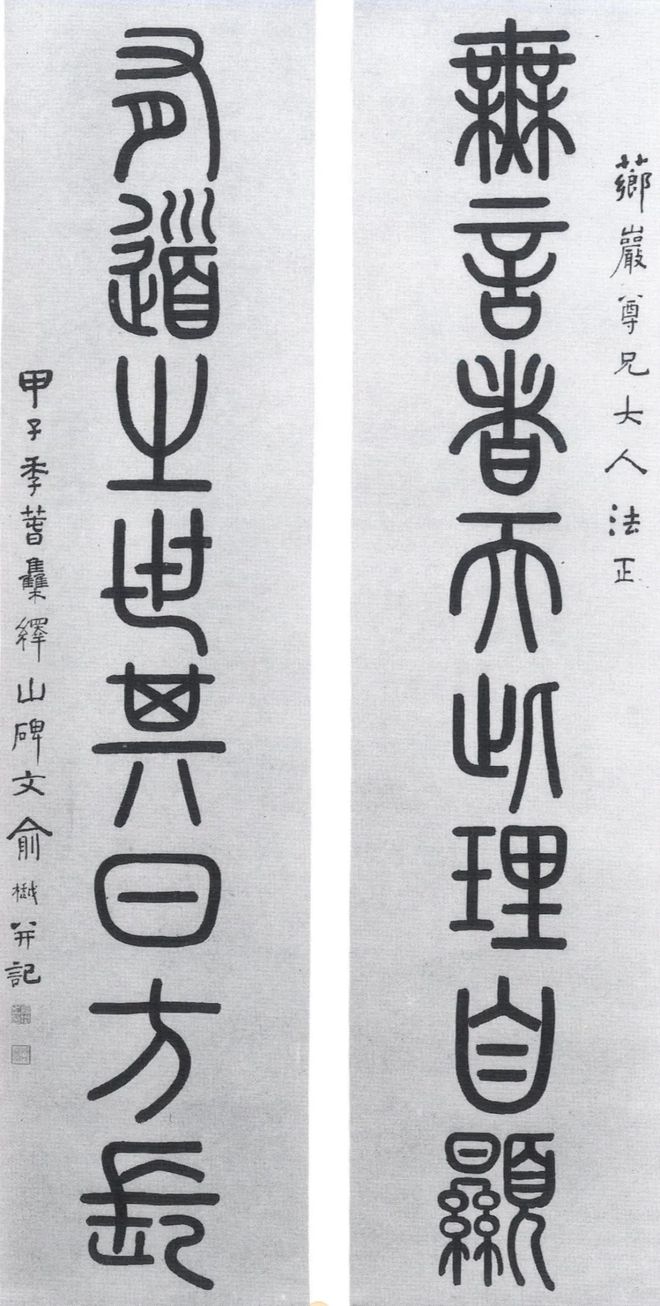 薌巖尊兄大人法正
無言者天此理自顯
有道之世其日方長
甲子季萅雧繹山碑文俞樾并記